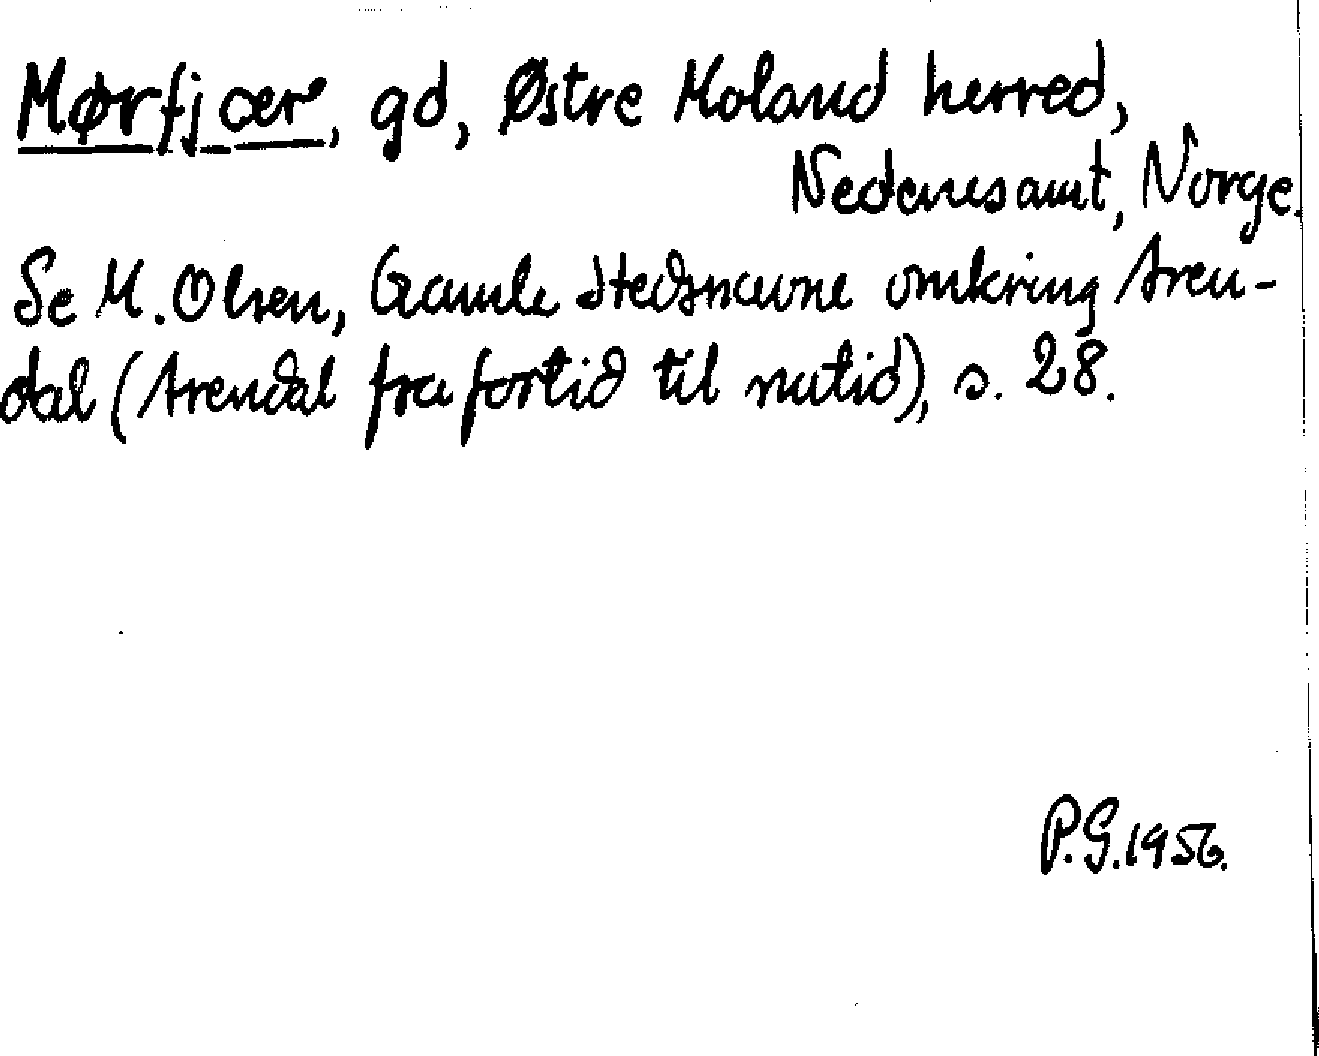 Mørfjær, gd, Østre Moland herred,
Nedenesamt, Norge.
Se M. Olsen, Gamle Stedsnavne omkring Aren-
dal (Arendal fra fortid til nutid), s. 28.
P.G. 1956.